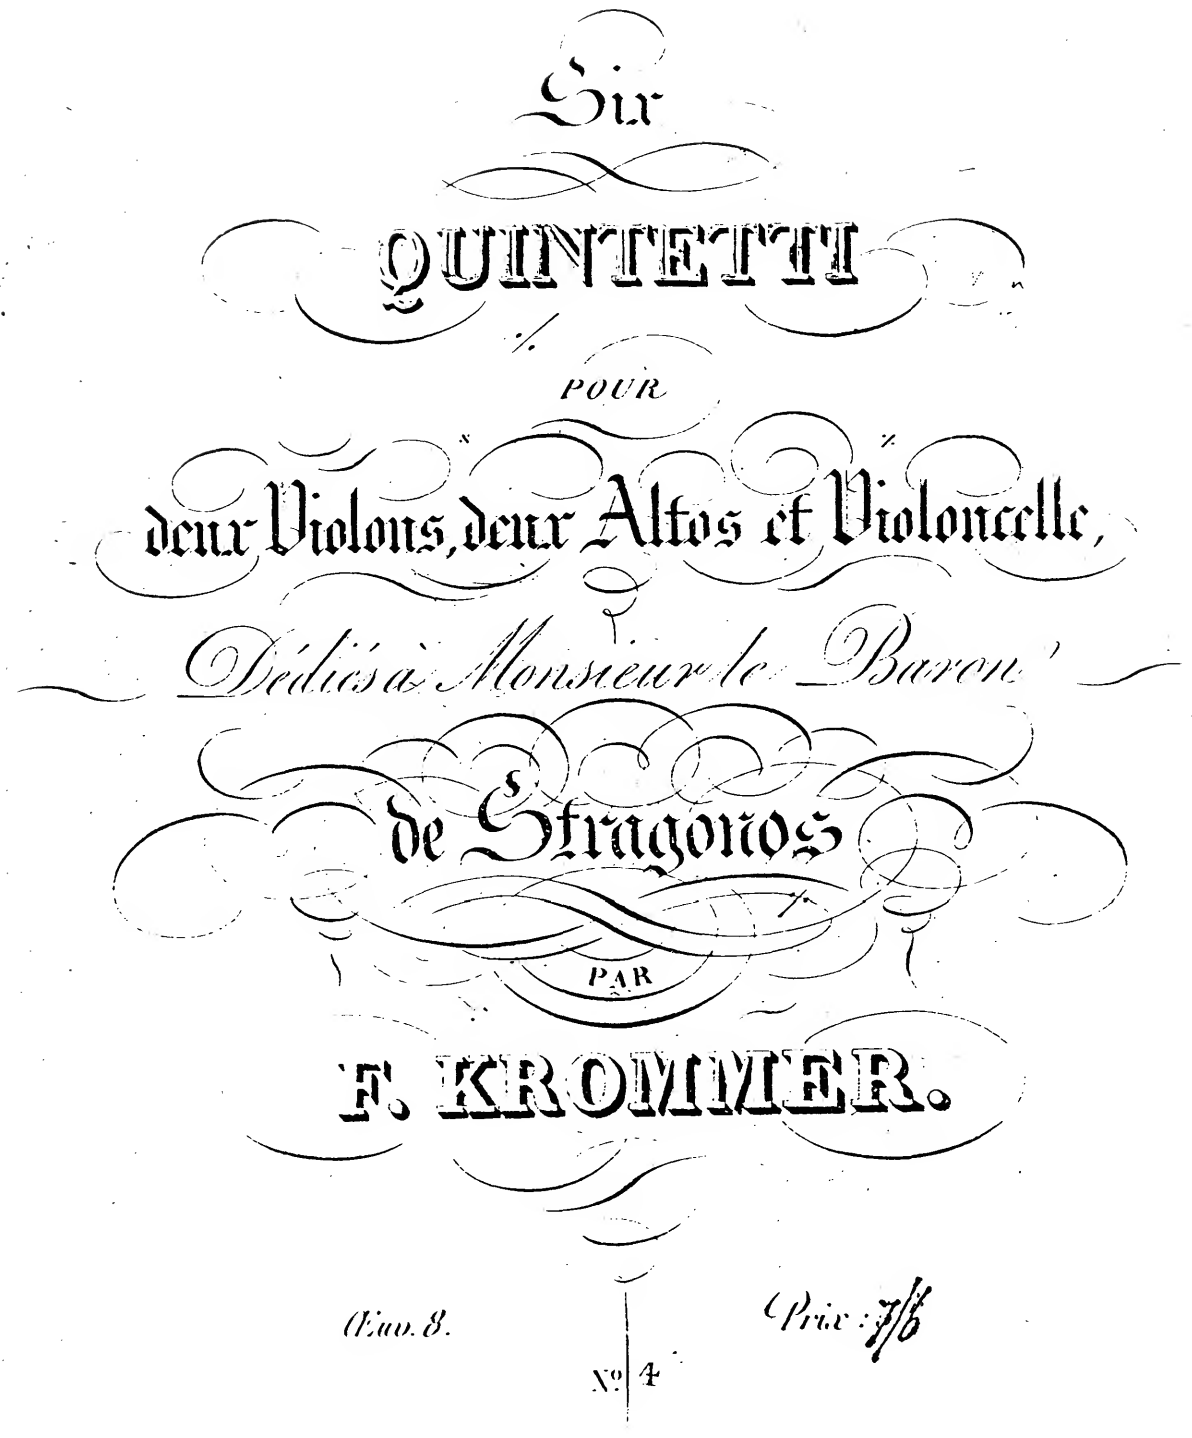 Six
QUINTETTI
POUR
deux Violons, deux Altos et Violoncelle,
Dédiés à Monsieur le Baron
de Stragonos
PAR
F. KROMMER.
Œuv. 8. Prix: 7/6
Nº 4